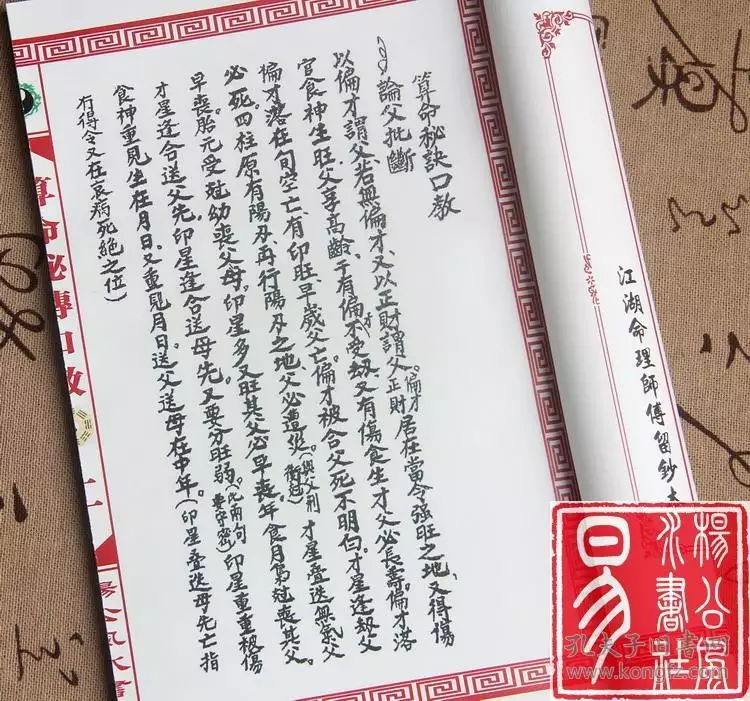 算命秘訣口教
論父批斷
以偏才謂父若無偏才又以正財謂父。偏才正財居在當令强旺之地、又得傷
官食神生旺、父享高齡、干有偏才不受刼、又有傷食生才父必長壽。偏才落
偏才落在旬空亡、有印旺早歲父亡、偏才被合父死不明白。才星逢刼父
必死。四柱原有陽刃、再行陽刃之地、父必遭災。(與父刑衝尅)才星叠迭無氣父
早喪。胎元受尅幼喪父母。印星多又旺其父必早喪。年食月梟尅喪其父。
才星逢合送父先、印星逢合送母先、又要分旺弱。(此兩句要守密)印星重重梭傷
食神重見生在月日、又重見月日送父送母在中年。(印星叠迭母先亡指
有得令又在衰病死絕之位)
算命秘傳口教
江湖命理師傅留鈔本
楊公風水書社
易
孔夫子旧书网
www.kongfz.com